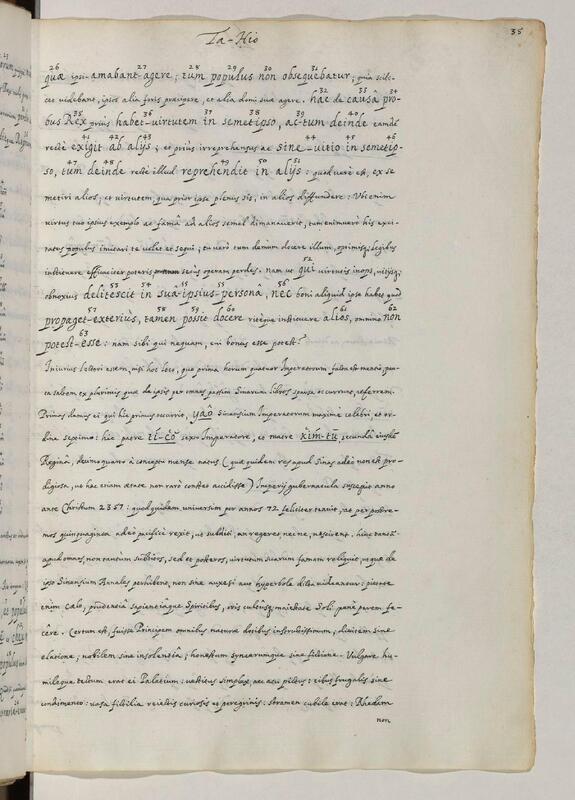 Ta-Hio
35
26 27 28 29 30 31
quæ ipsi amabant agere; tum populus non obsequebatur; quia scili-
32 33 34
cet videbant, ipsos alia foris præcipere, et alia domi suæ agere. hac de causâ pro-
35 36 37 38 39 40
bus Rex prius habet-virtutem in semetipso, ac-tum deinde eamdẽ
41 42 43 44 45 46
rectè exigit ab alijs; et prius irreprehensus ac sine-vitio in semetip-
47 48 49 50 51
so, tum deinde rectè illud reprehendit in alijs: quod verè est, ex se
metiri alios; et virtutem, qua prior ipse plenus sis, in alios diffundere: Ubi enim
virtus tuo ipsius exemplo ac famâ ad alios semel dimanaverit, tum enimverò his exci-
tatus populus imitari te volet et sequi; tu verò tum demum docere illum, optimisq; legibus
52
instituere efficaciter poteris secus operam perdes. nam ut qui virtutis inops, vitijsq;
53 54 55 55 56
obnoxius delitescit in suâ-ipsius-personâ, nec boni aliquid ipse habet quod
57 58 59 60 61 62
propaget-exteriùs, tamen possit docere ritèque instituere alios, omnino non
63
potest-esse: nam sibi qui nequam, cui bonus esse potest?
Iniurius lectori essem, nisi hoc loco, quo prima horum quatuor Imperatorum facta est mentio, pau-
ca saltem ex plurimis quæ de ipsis per omnes passim Sinarum libros sparsa occurrunt, referrem.
Primus itaque is qui hic primus occurrit, yao Sinensium Imperatorum maximè celebri, et or-
dine septimo: hic patre tí-co sexto Imperatore, et matre kim-tu, secundâ eiusdẽ
Reginâ, decimoquarto à conceptu mense natus (quæ quidem res apud Sinas adeò non est pro-
digiosa, ut hac etiam ætate non rarò constet accidisse) Imperij gubernacula suscepit anno
ante Christum 2357: quod quidem universim per annos 72 feliciter tenuit, ac per postre-
mos quinquaginta adeò pacificè rexit, ut subditi, an regeres necne, nescirent. hinc tantam
apud omnes, non tantùm subditos, sed et posteros, virtutum suarum famam reliquit, ut quæ de
ipso Sinensium Annales perhibent, non sine auxesi aut hyperbole dicta videantur: pietate
enim Cælo, prudentiâ sapientiâque Spiritibus, oris cultusq; maiestate Soli penè parem fe-
cêre. Certum est, fuisse Principem omnibus naturæ dotibus instructissimum; divitem sine
elatione; nobilem sine insolentiâ; honestum syncerumque sine fictione. Vulgare hu-
mileque tectum erat ei Palatium: vestitus simplex, nec acu pictus: cibus frugalis sine
condimento: vasa fictilia reiectis curiosis et peregrinis: stramen cubile erat: Rhedam
non